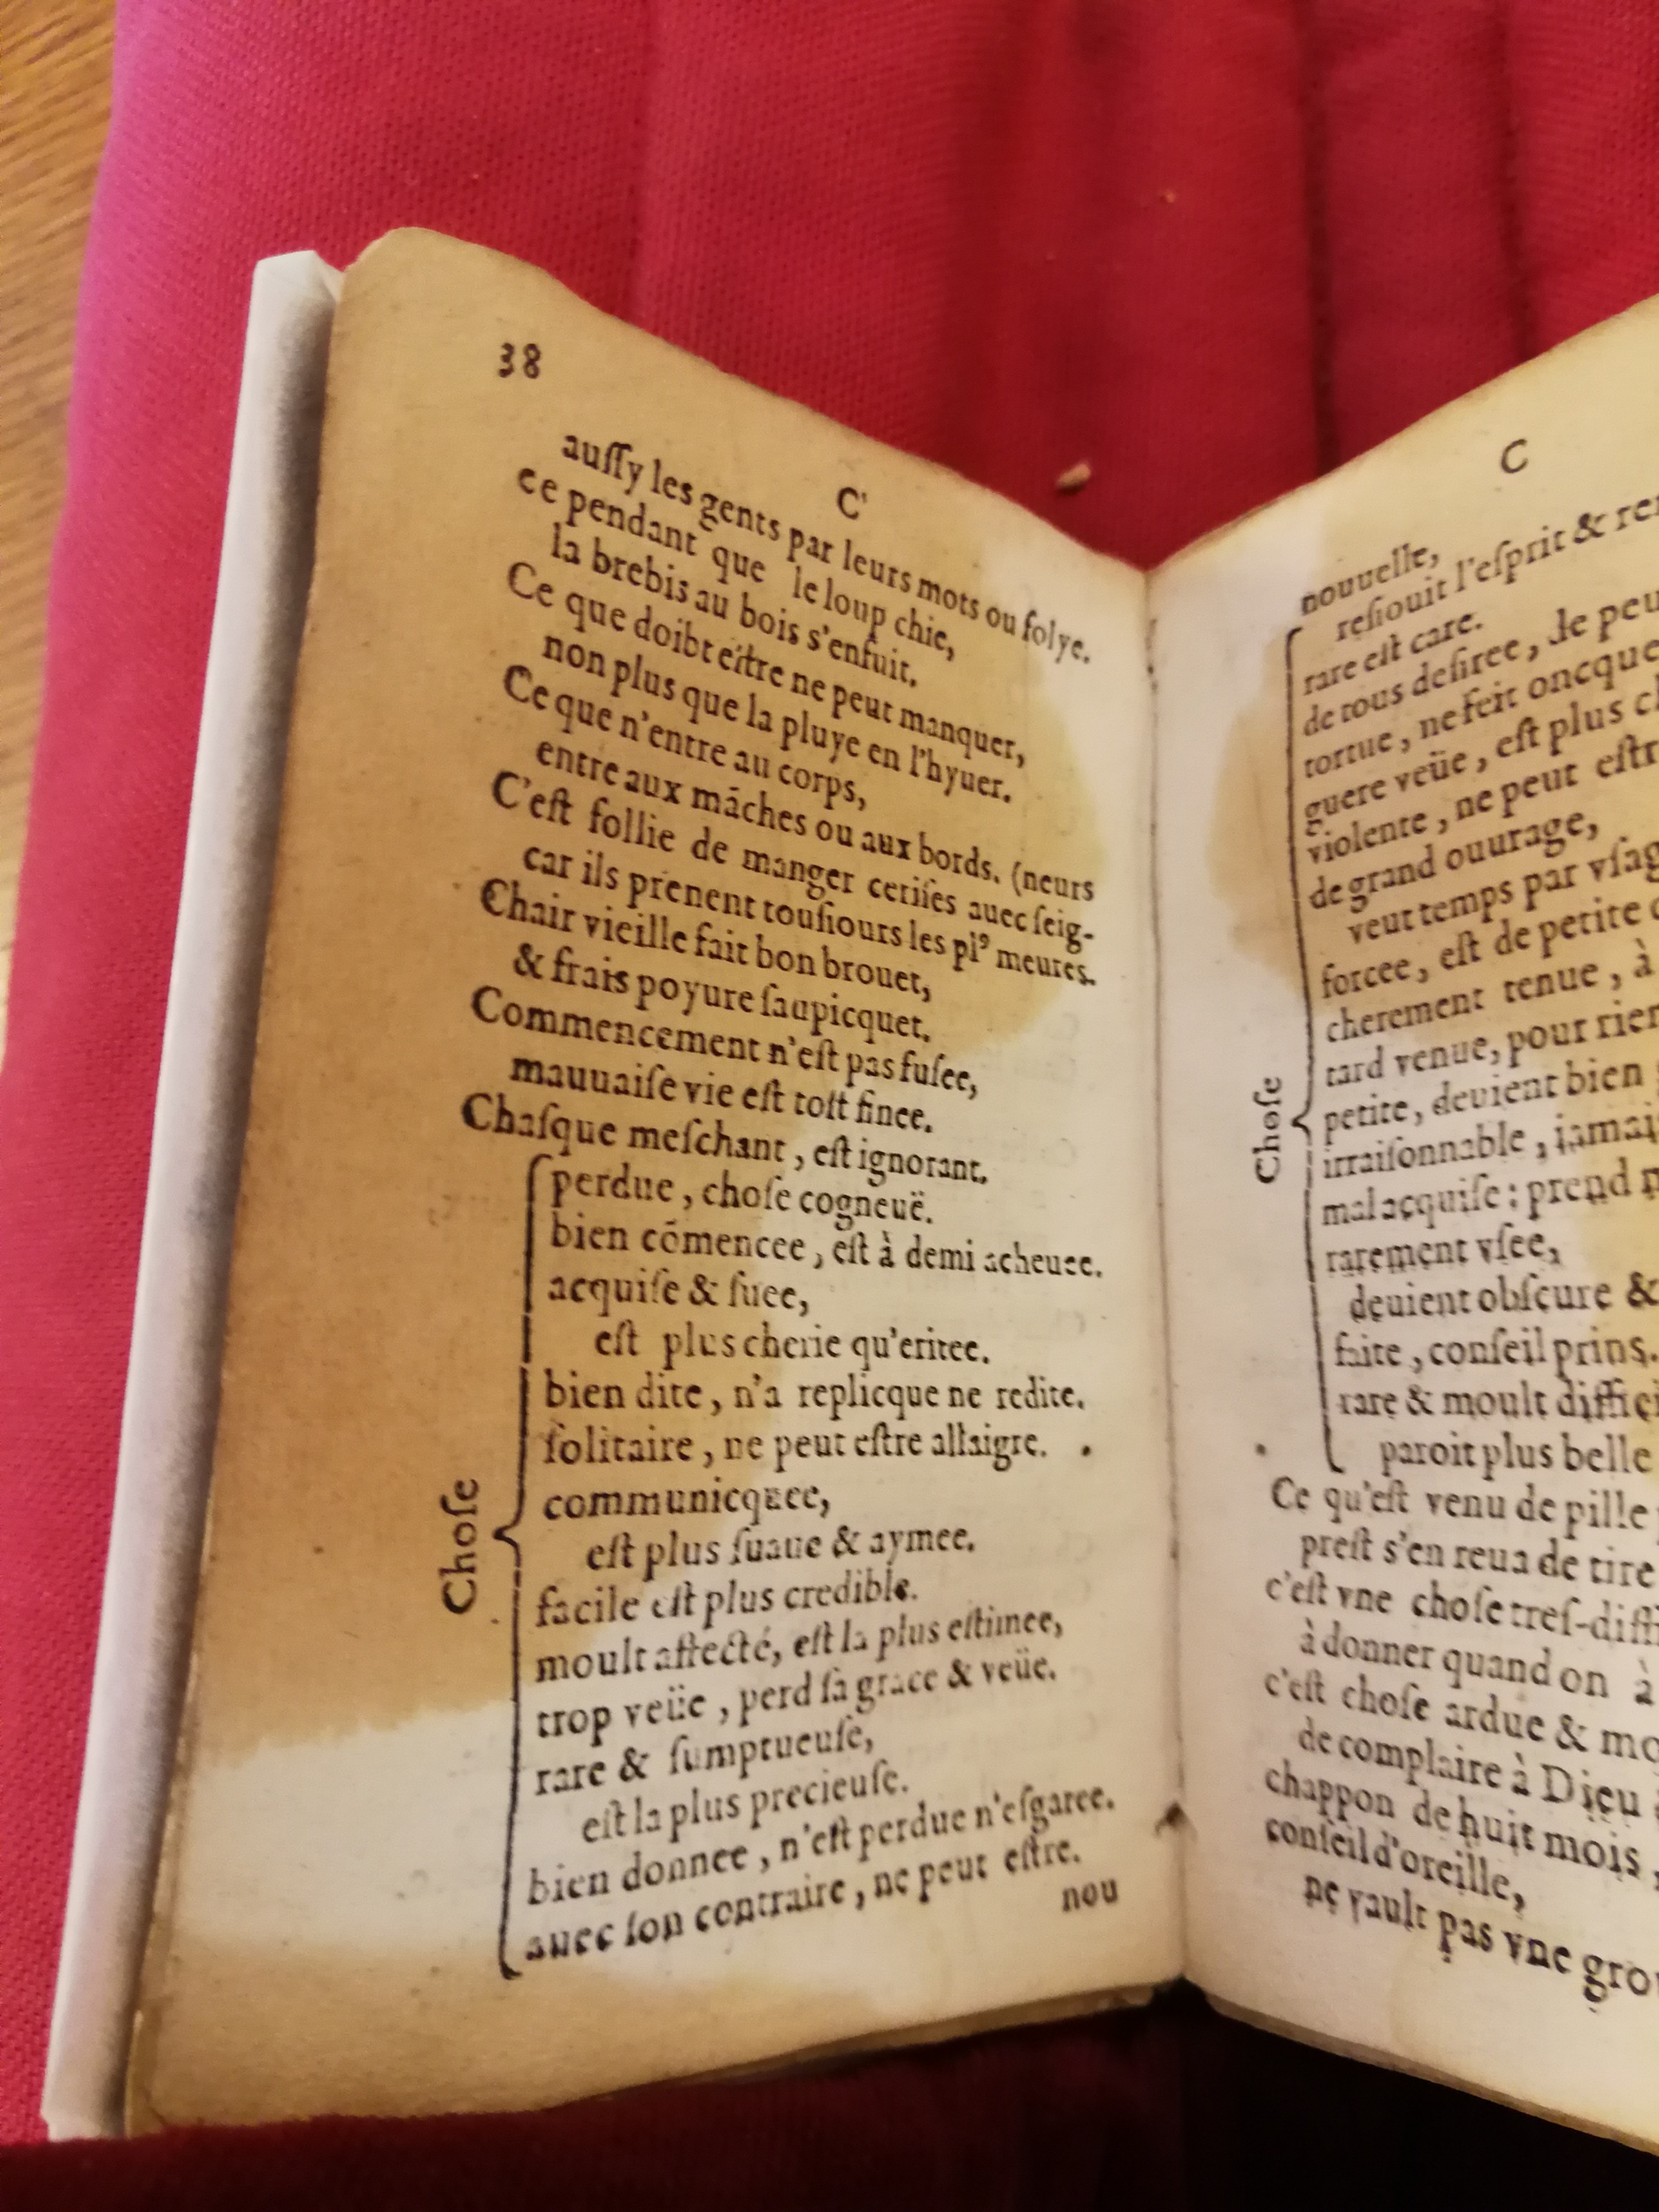 38
C
auſſy les gents par leurs mots ou folye.
ce pendant que le loup chie,
la brebis au bois s'enfuit.
Ce que doibt eſtre ne peut manquer,
non plus que la pluye en l'hyuer.
Ce que n'entre au corps,
entre aux mãches ou aux bords. (neurs
C'eſt follie de manger ceriſes auec ſeig-
car ils prenent touſiours les plꝰ meures.
Chair vieille fait bon brouet,
& frais poyure ſaupicquet.
Commencement n'eſt pas fuſee,
mauuaiſe vie eſt toſt finee.
Chaſque meſchant, eſt ignorant.
Choſe
perdue, choſe cogneuë.
bien cõmencee, eſt à demi acheuee.
acquiſe & ſuee,
eſt plus cherie qu'eritee.
bien dite, n'a replicque ne redite.
ſolitaire, ne peut eſtre allaigre.
communicquee,
eſt plus ſuaue & aymee.
facile eſt plus credible.
moult affecté, eſt la plus eſtimee,
trop veüe, perd ſa grace & veüe.
rare & ſumptueuſe,
eſt la plus precieuſe.
bien donnee, n'eſt perdue n'eſgaree.
auec ſon contraire, ne peut eſtre.
nou
C
nouuelle,
reſiouit l'eſprit & ren
rare eſt care.
de tous deſiree, de peu
tortue, ne feit oncque
guere veüe, eſt plus ch
violente, ne peut eſtr
de grand ouurage,
veut temps par vſag
forcee, eſt de petite d
cherement tenue, à
tard venue, pour rien
petite, deuient bien
irraiſonnable, iamais
mal acquiſe: prend m
rarement vſee,
deuient obſcure &
faite, conſeil prins.
rare & moult diffici
paroit plus belle
Choſe
Ce qu'eſt venu de pille
preſt s'en reua de tire
c'eſt vne choſe treſ-diffi
à donner quand on à
c'eſt choſe ardue & mo
de complaire à Dieu
chappon de huit mois,
conſeil d'oreille,
ne vault pas vne gro